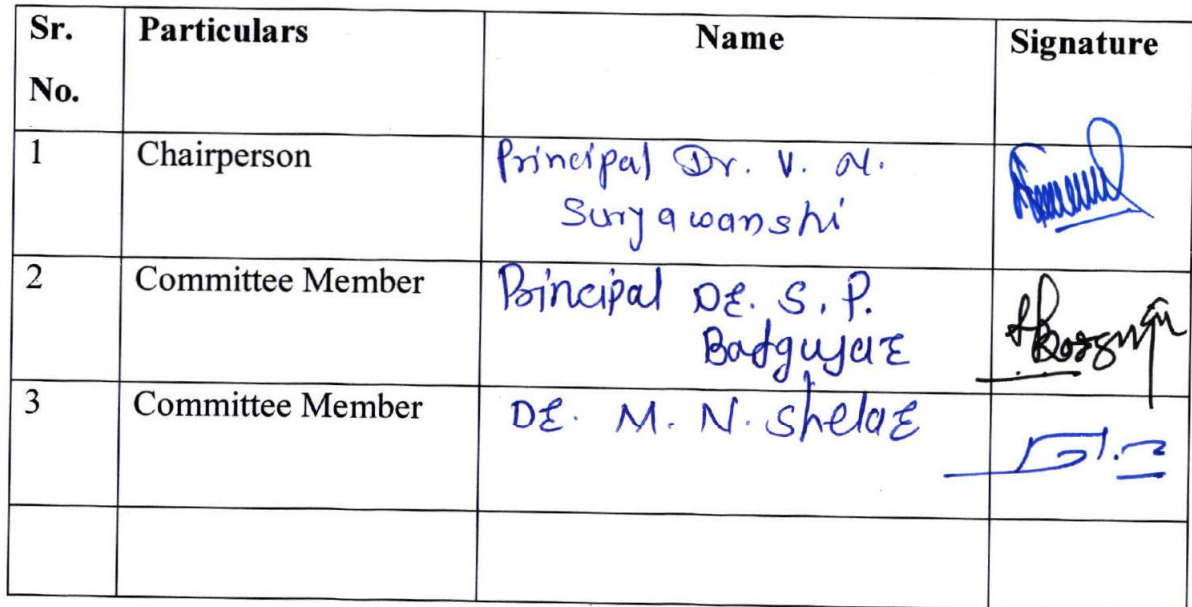 Sr. No. Particulars Name Signature
1 Chairperson Principal Dr. V. N.
Suryawanshi
2 Committee Member Principal Dr. S. P.
Badgujar
3 Committee Member Dr. M. N. Shelar